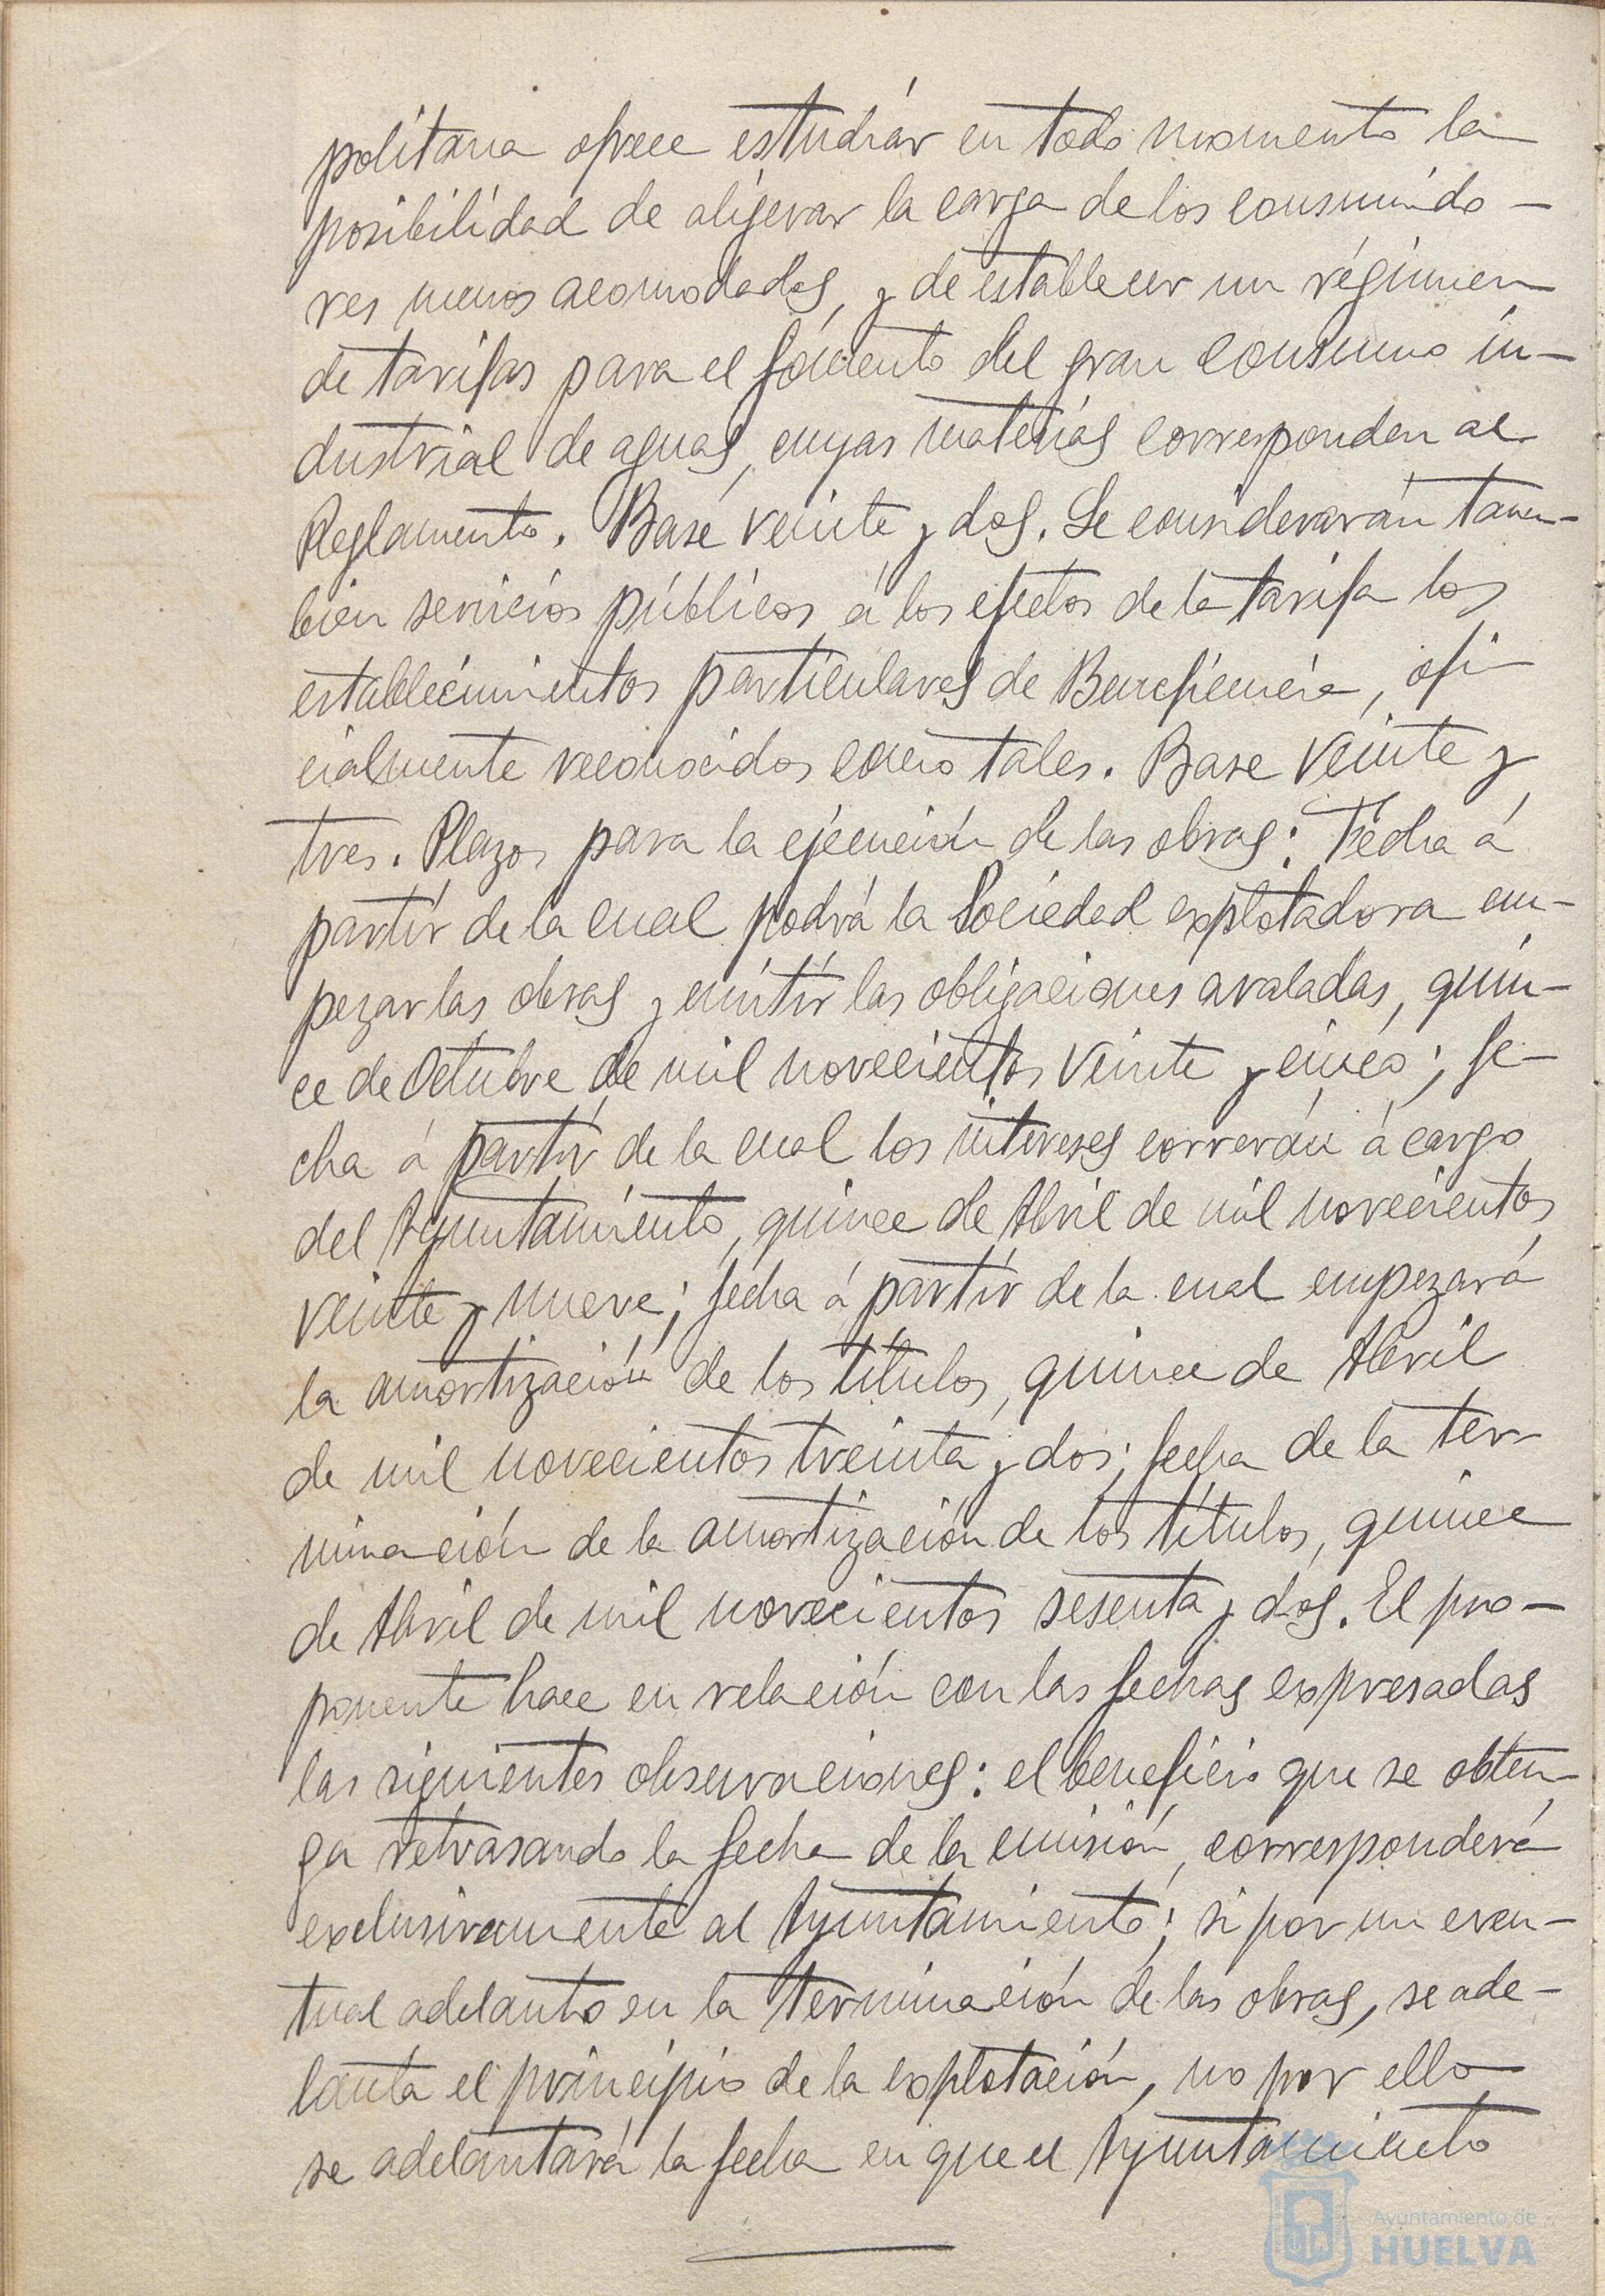 politana ofrece estudiar en todo momento la
posibilidad de aligerar la carga de los consumido-
res menos acomodados, y de establecer un régimen
de tarifas para el fomento del gran consumo in-
dustrial de aguas, cuyas materias corresponden al
Reglamento. Base veinte y dos. Se considerarán tam-
bien servicios públicos á los efectos de la tarifa los
establecimientos particulares de Beneficencia, ofi
cialmente reconocidos como tales. Base veinte y
tres. Plazos para la ejecución de las obras: Fecha á
partir de la cual podrá la Sociedad explotadora em-
pezar las obras y emitir las obligaciones avaladas, quin-
ce de Octubre de mil novecientos veinte y cinco; fe-
cha á partir de la cual los intereses correrán á cargo
del Ayuntamiento, quince de Abril de mil novecientos
veinte y nueve; fecha á partir de la cual empezará
la amortización de los títulos, quince de Abril
de mil novecientos treinta y dos; fecha de la ter-
minación de la amortización de los títulos, quince
de Abril de mil novecientos sesenta y dos. El pro-
ponente hace en relación con las fechas expresadas
las siguientes observaciones: el beneficio que se obten-
ga retrasando la fecha de la emisión, corresponderá
exclusivamente al Ayuntamiento; si por un even-
tual adelanto en la terminación de las obras, se ade-
lanta el principio de la explotación, no por ello
se adelantará la fecha en que el Ayuntamiento
Ayuntamiento de
HUELVA